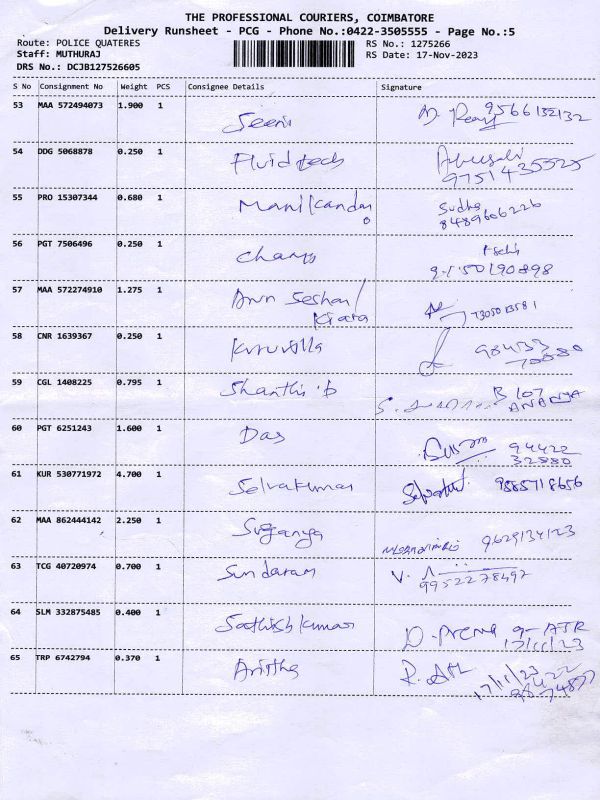 THE PROFESSIONAL COURIERS, COIMBATORE
Delivery Runsheet - PCG - Phone No.:0422-3505555 - Page No.:5
Route: POLICE QUATERES
Staff: MUTHURAJ
DRS No.: DCJB127526605
RS No.: 1275266
RS Date: 17-Nov-2023
S No Consignment No Weight PCS Consignee Details Signature
53 MAA 572494073 1.900 1 9566132132
54 DDG 5068878 0.250 1 Fluidtech 9751435525
55 PRO 15307344 0.680 1 Manikandan Sudha
8489606226
56 PGT 7506496 0.250 1 Champs
9150190898
57 MAA 572274910 1.275 1 Arun Seshan/
Kiara 7305013581
58 CNR 1639367 0.250 1 Kuruvilla 984133
70880
59 CGL 1408225 0.795 1 Shanthi.b B 107
ANANYA
60 PGT 6251243 1.600 1 Das 94422
32880
61 KUR 530771972 4.700 1 Selvakumar 9885718656
62 MAA 862444142 2.250 1 Suganya 9629134123
63 TCG 40720974 0.700 1 Sundaram V.
9952278497
64 SLM 332875485 0.400 1 Sathishkumar
17/11/23
65 TRP 6742794 0.370 1 R.
17/11/23
98422
74877